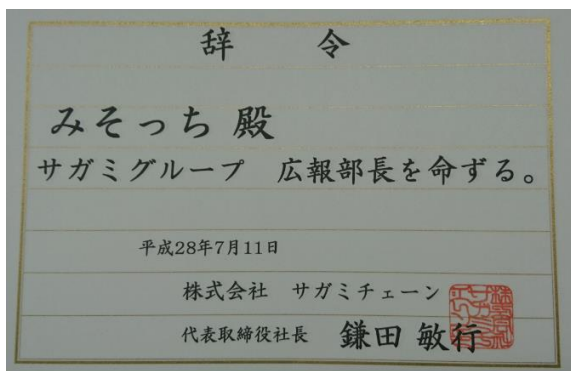 辞 令
みそっち 殿
サガミグループ 広報部長を命ずる。
平成28年7月11日
株式会社 サガミチェーン
代表取締役社長 鎌田 敏行